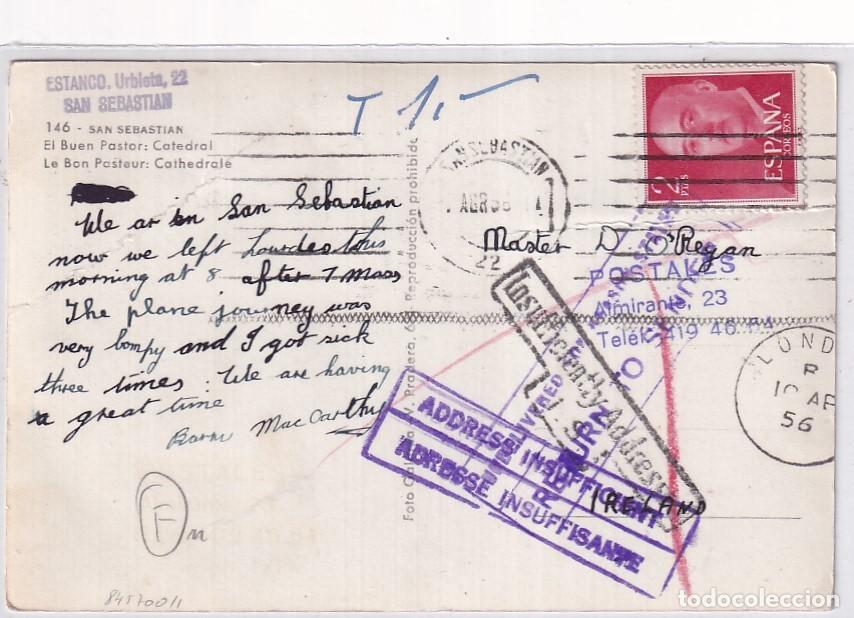 ESTANCO. Urbieta, 22
SAN SEBASTIAN
146 - SAN SEBASTIAN
El Buen Pastor: Catedral
Le Bon Pasteur: Cathedrale
T 1,-
We ar in San Sebastian
now we left Lourdes this
morning at 8 after 7 Mass
The plane journey was
very bompy and I got sick
three times. We are having
a great time
MacCarthy
Fn
84570011
Reproducción prohibida
Foto
SAN SEBASTIAN
ABR 56
22
2
PTS
ESPAÑA
CORREOS
Master D O'Regan
POSTALES
Almirante, 23
Teléf. 419 46 64
Insufficiently Addressed
UNDELIVERED
RETURN TO SENDER
ADDRESS INSUFFICIENT
ADRESSE INSUFFISANTE
IRELAND
LOND
R
10 AP
56
todocoleccion